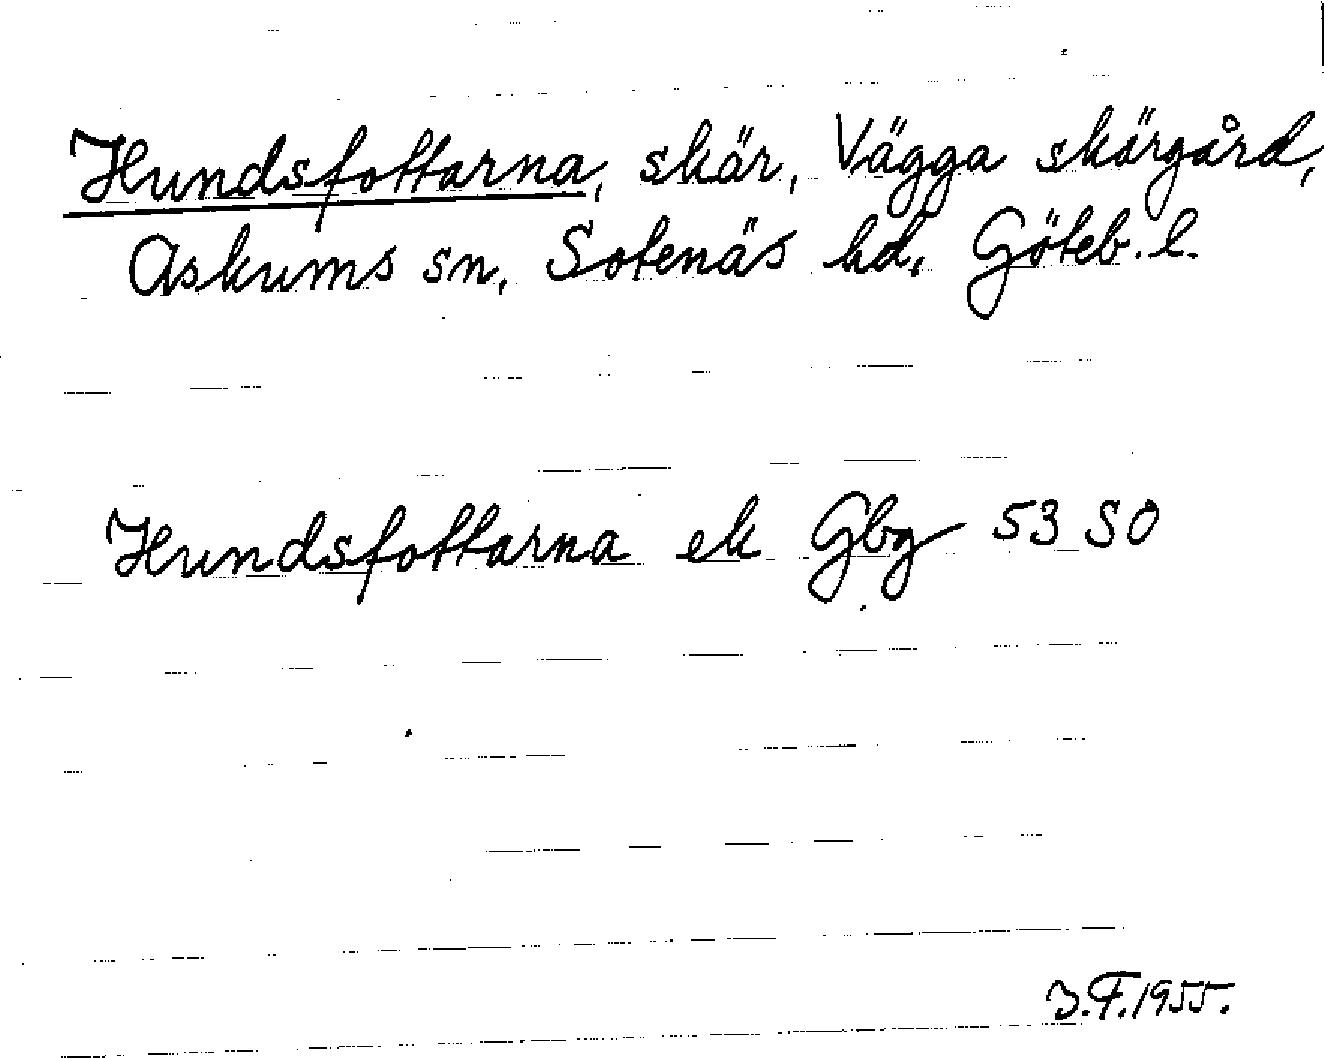 Hundsfottarna, skär, Vägga skärgård,
Askums sn, Sotenäs hd, Göteb. l.
Hundsfottarna ek Gbg 53 SO
J.F. 1955.